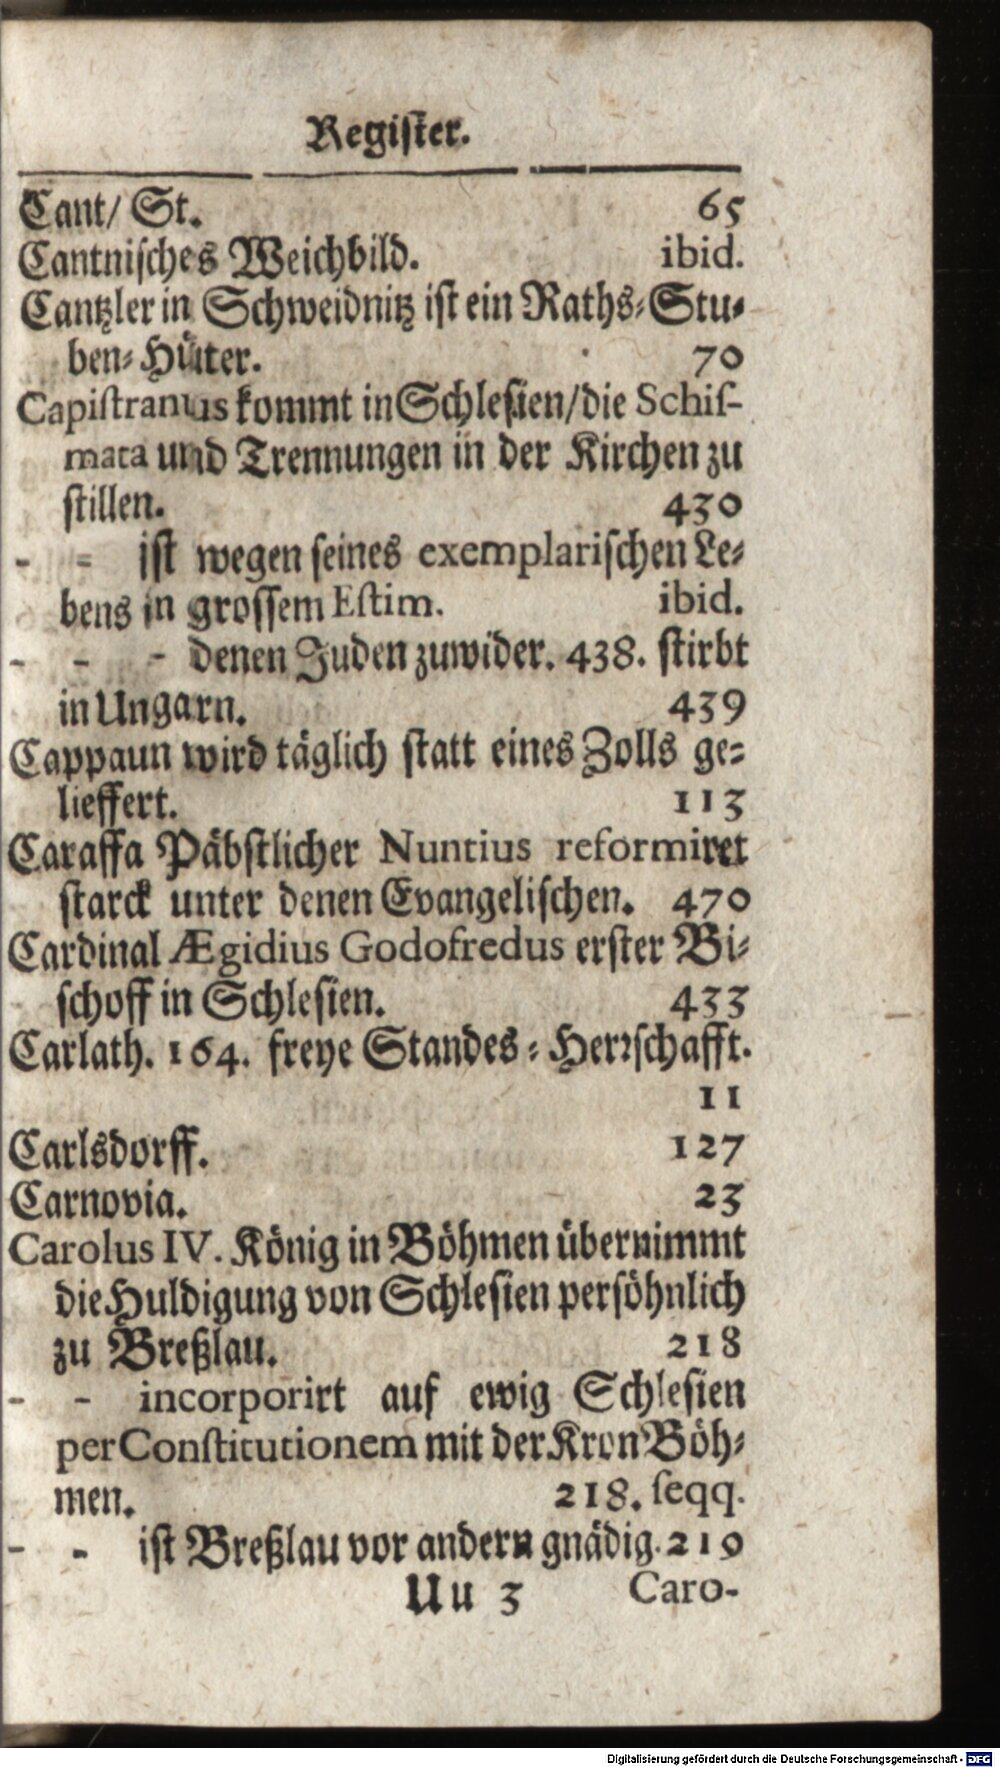 Register.
Cant/ St. 65
Cantnisches Weichbild. ibid.
Cantzler in Schweidnitz ist ein Raths-Stu-
ben-Hüter. 70
Capiſtranus kommt in Schlesien/die Schiſ-
mata und Trennungen in der Kirchen zu
stillen. 430
- - ist wegen seines exemplarischen Le-
bens in grossem Eſtim. ibid.
- - - denen Juden zuwider. 438. stirbt
in Ungarn. 439
Cappaun wird täglich statt eines Zolls ge-
lieffert. 113
Caraffa Päbstlicher Nuntius reformiret
starck unter denen Evangelischen. 470
Cardinal Ægidius Godofredus erster Bi-
schoff in Schlesien. 433
Carlath. 164. freye Standes-Herrschafft.
11
Carlsdorff. 127
Carnovia. 23
Carolus IV. König in Böhmen übernimmt
die Huldigung von Schlesien persöhnlich
zu Breßlau. 218
- - incorporirt auf ewig Schlesien
per Conſtitutionem mit der Kron Böh-
men. 218. ſeqq.
- - ist Breßlau vor andern gnädig. 219
Uu 3 Caro-
Digitalisierung gefördert durch die Deutsche Forschungsgemeinschaft - DFG